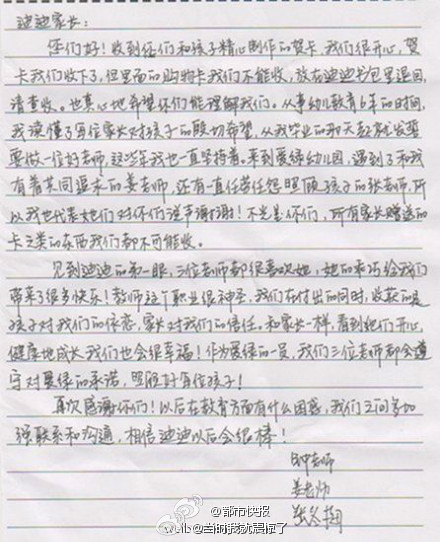 迪迪家长：
您们好！收到你们和孩子精心制作的贺卡，我们很开心，贺
卡我们收下了，但里面的购物卡我们不能收，放在迪迪书包里退回，
请查收。也真心地希望你们能理解我们。从事幼儿教育6年的时间，
我读懂了每位家长对孩子的殷切希望，从我毕业的那天起就发誓
要做一位好老师，这些年我也一直坚持着。来到爱绿幼儿园，遇到了和我
有着共同追求的姜老师，还有一直任劳任怨照顾孩子的张老师，所
以我也代表她们对你们说声谢谢！不光是你们，所有家长赠送的
卡之类的东西我们都不可能收。
见到迪迪的第一眼，三位老师都很喜欢她，她的来访给我们
带来了很多快乐！教师这个职业很神圣，我们在付出的同时，收获的是
孩子对我们的信恋，家长对我们的信任。和家长一样，看到她们开心，
健康地成长我们也会很幸福！作为爱绿的一员，我们三位老师都会遵
守对爱绿的承诺，照顾好每位孩子！
再次感谢你们！以后在教育方面有什么困惑，我们之间多加
强联系和沟通，相信迪迪以后会很棒！
钟老师
姜老师
@都市快报
weib @当时我就震惊了